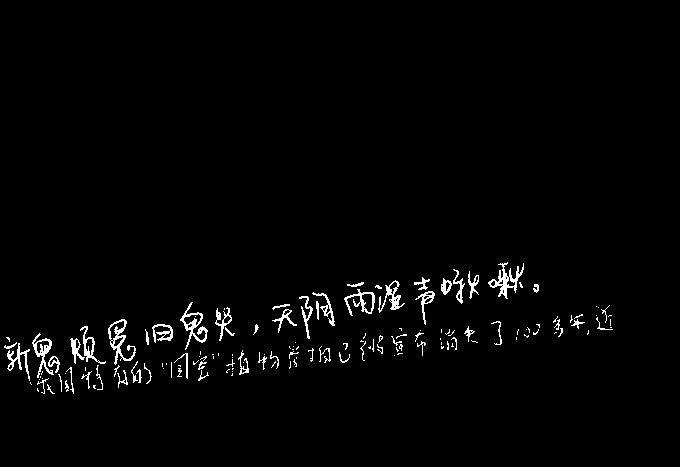 新鬼烦冤旧鬼哭，天阴雨湿声啾啾。
我国特有的“国宝”植物崖柏已经宣布消失了100多年，近